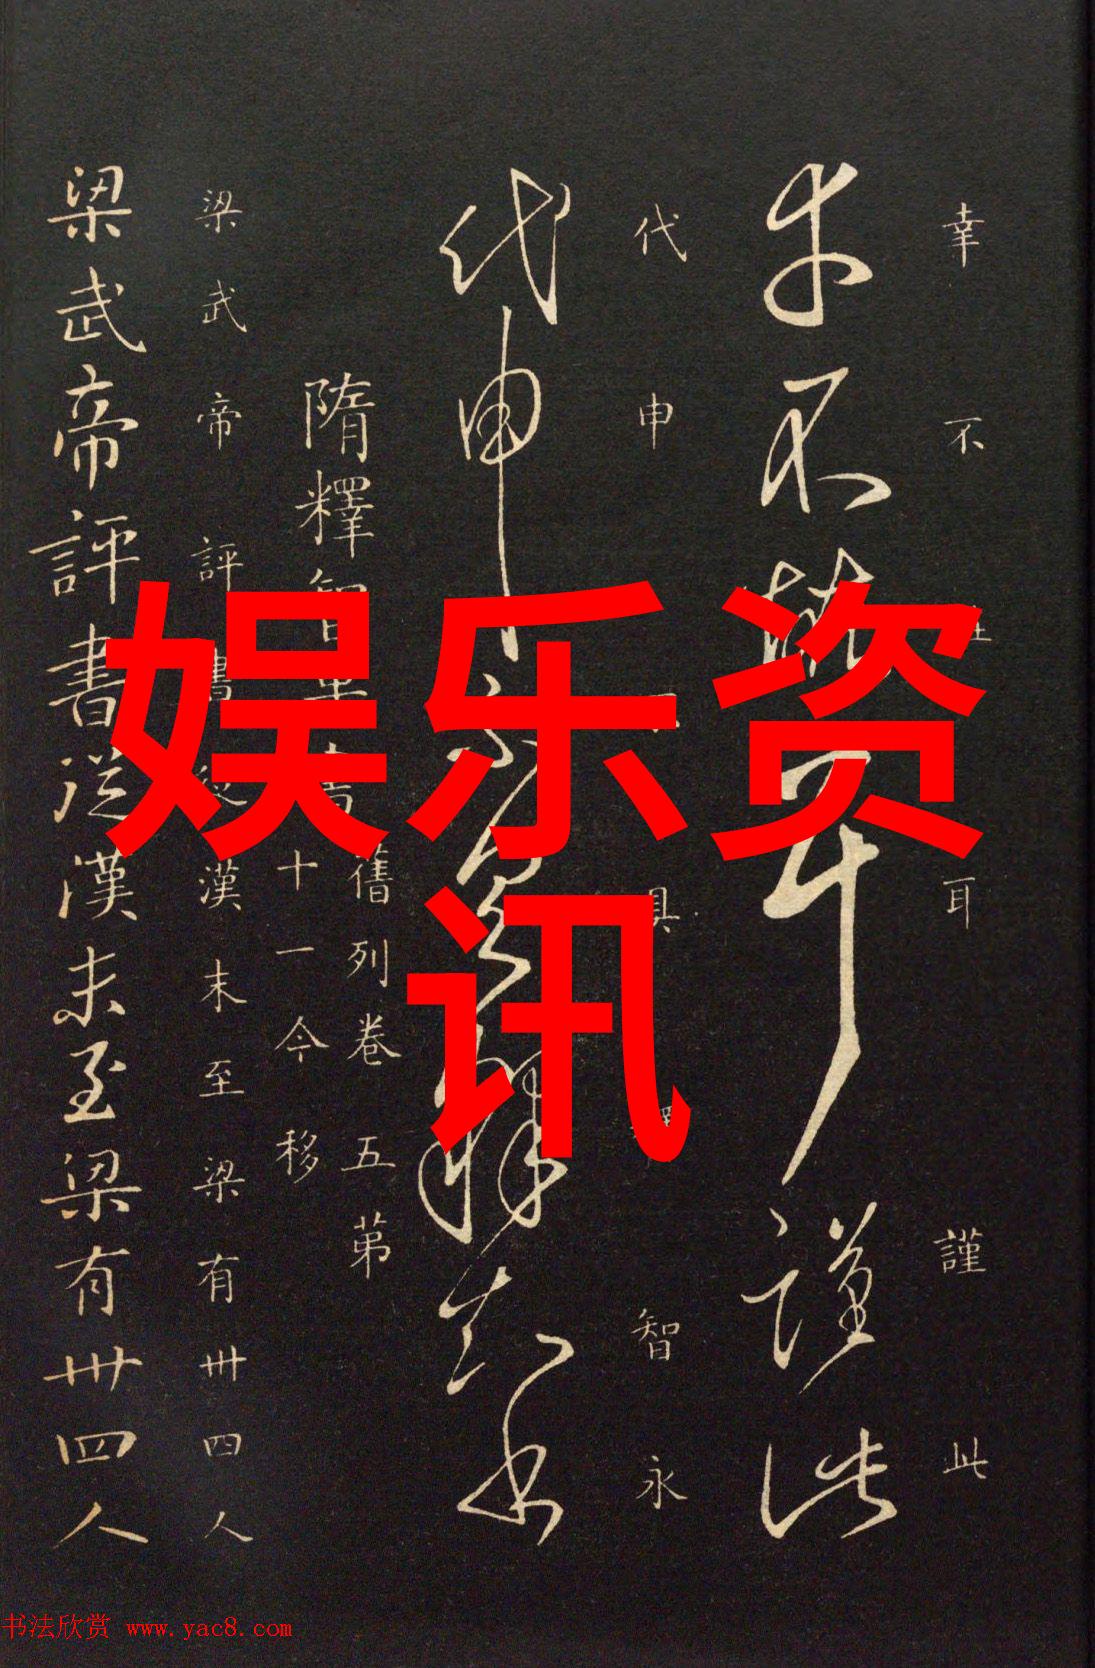 幸不 耳謹此
幸不 耳謹此
代申 具釋智永
代申不具釋智永
隋釋智
舊列卷五第
十一今移
梁武帝評書從漢末至梁有卅四人
梁武帝評書從漢末至梁有卅四人
娱乐资
讯
书法欣赏 www.yac8.com